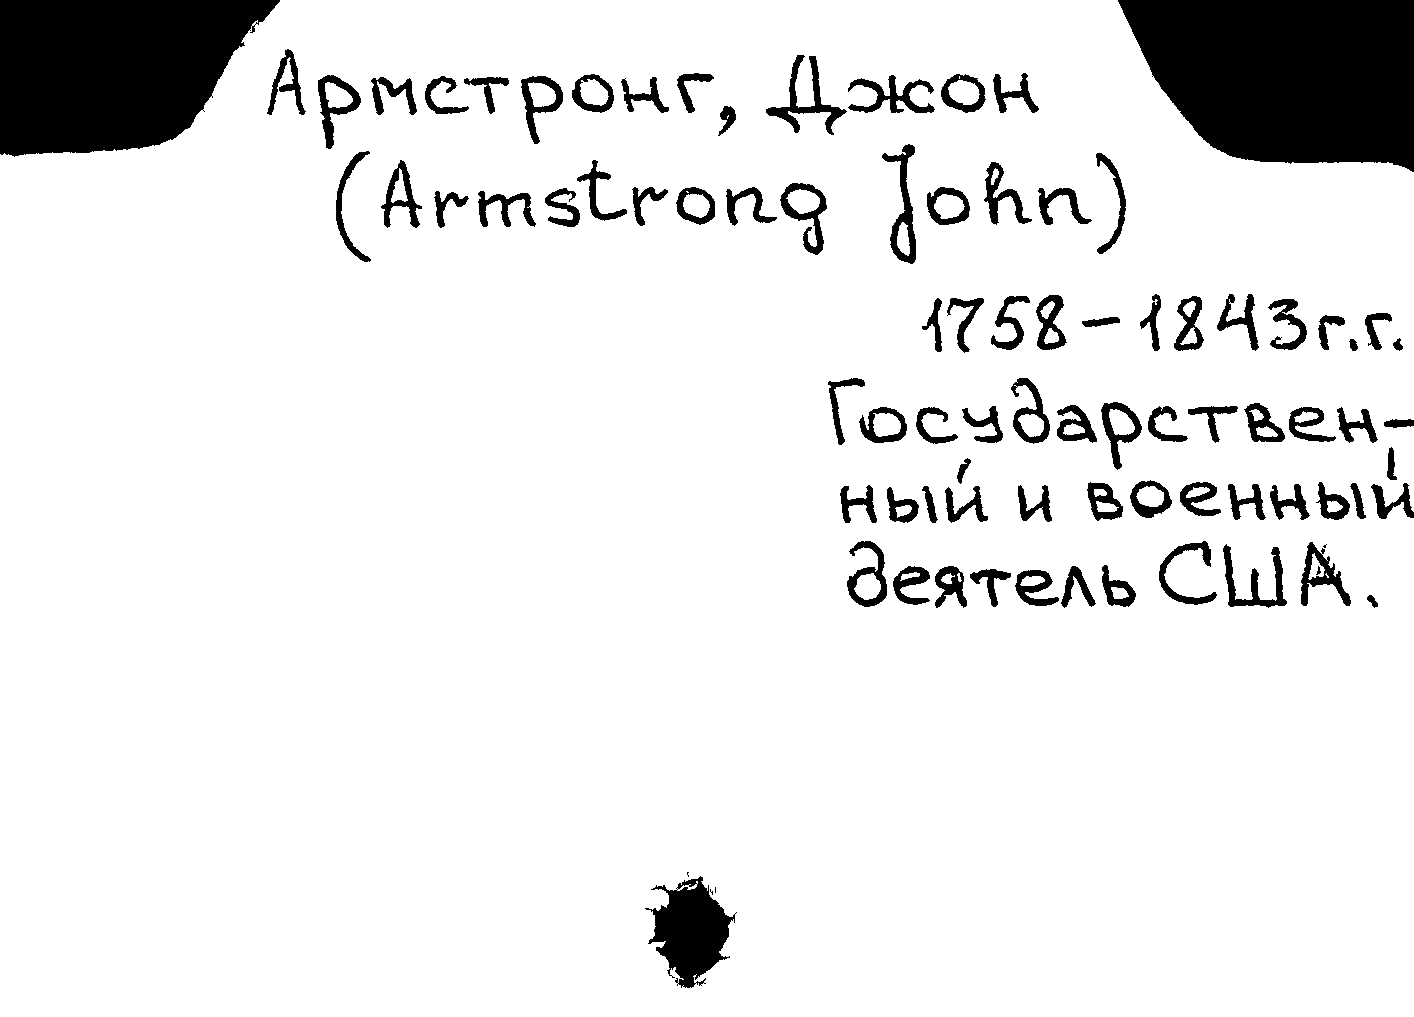 Армстронг, Джон
(Armstrong John)
1758-1843г.г.
Государствен-
ный и военный
деятель США.